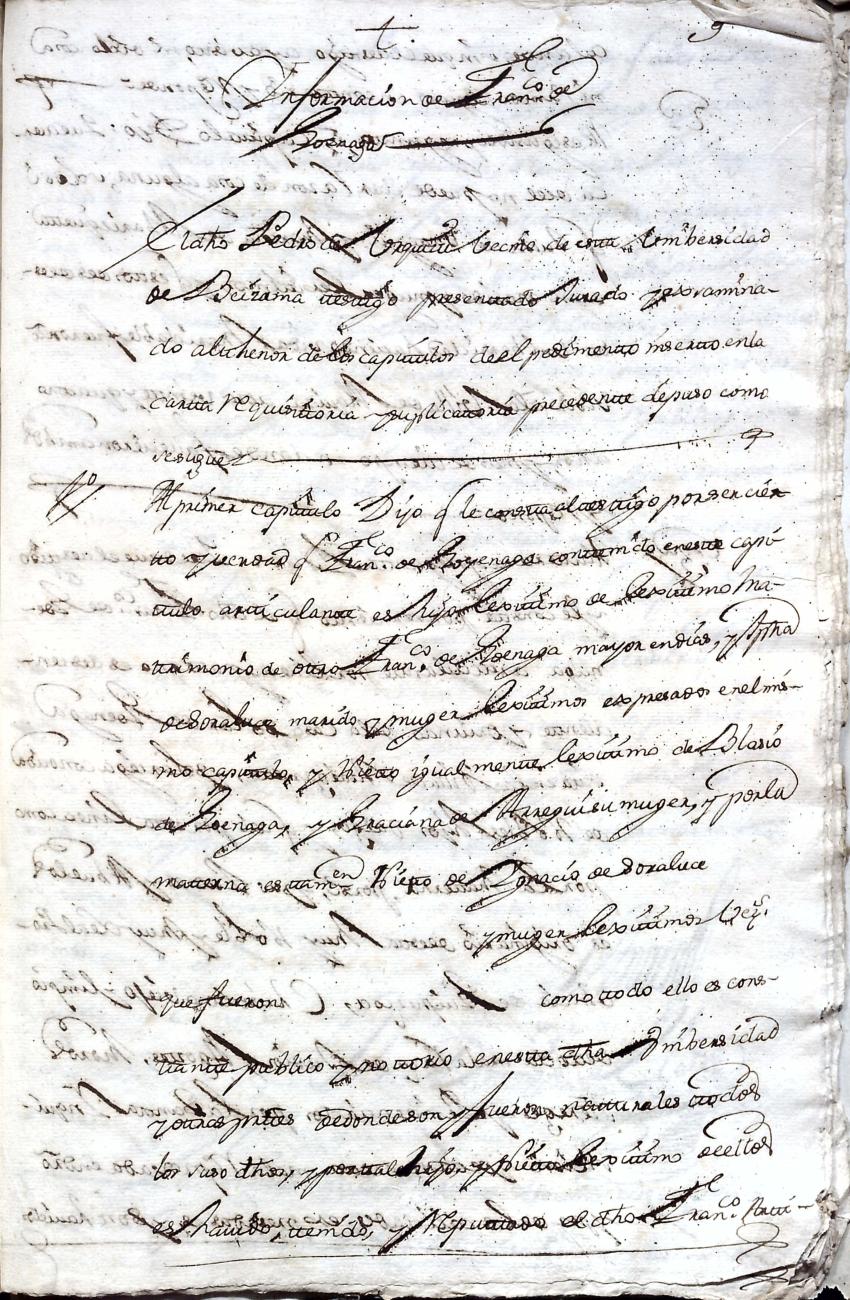 9
Informacion de Fran.co de
Goenaga
El dho Pedro de Vrquia Vecino de esta Vniversidad
de Beizama testigo presentado Jurado y examina-
do althenor de los capitulos del pedimento inserto en la
carta requisitoria suplicatoria precedente depuso como
se sigue
1º Al primer capitulo Dijo q le consta al testigo por ser cier-
to y verdad q Fran.co de Goyenaga contenido en este capi-
tulo articulante es hijo lexitimo de lexitimo ma-
trimonio de otro Fran.co de Goenaga mayor en dias, y
de Doraluce marido y muger lexitimos expresados en el mis-
mo capitulo, y Nieto igualmente lexitimo de Blasio
de Goenaga, y Graciana de Arregui su muger, y por la
materna es tam.en Nieto de Ignacio de Doraluce
y muger lexitimos Vez.s
que fueron como todo ello es cons-
tante publico y notorio en esta dha Vniversidad
y otras partes de donde son y fueron naturales todos
los suso dhos, y por tal hijo, y Nieto lexitimo de ellos
es havido, tenido, y Reputado el dho Fran.co Arti-